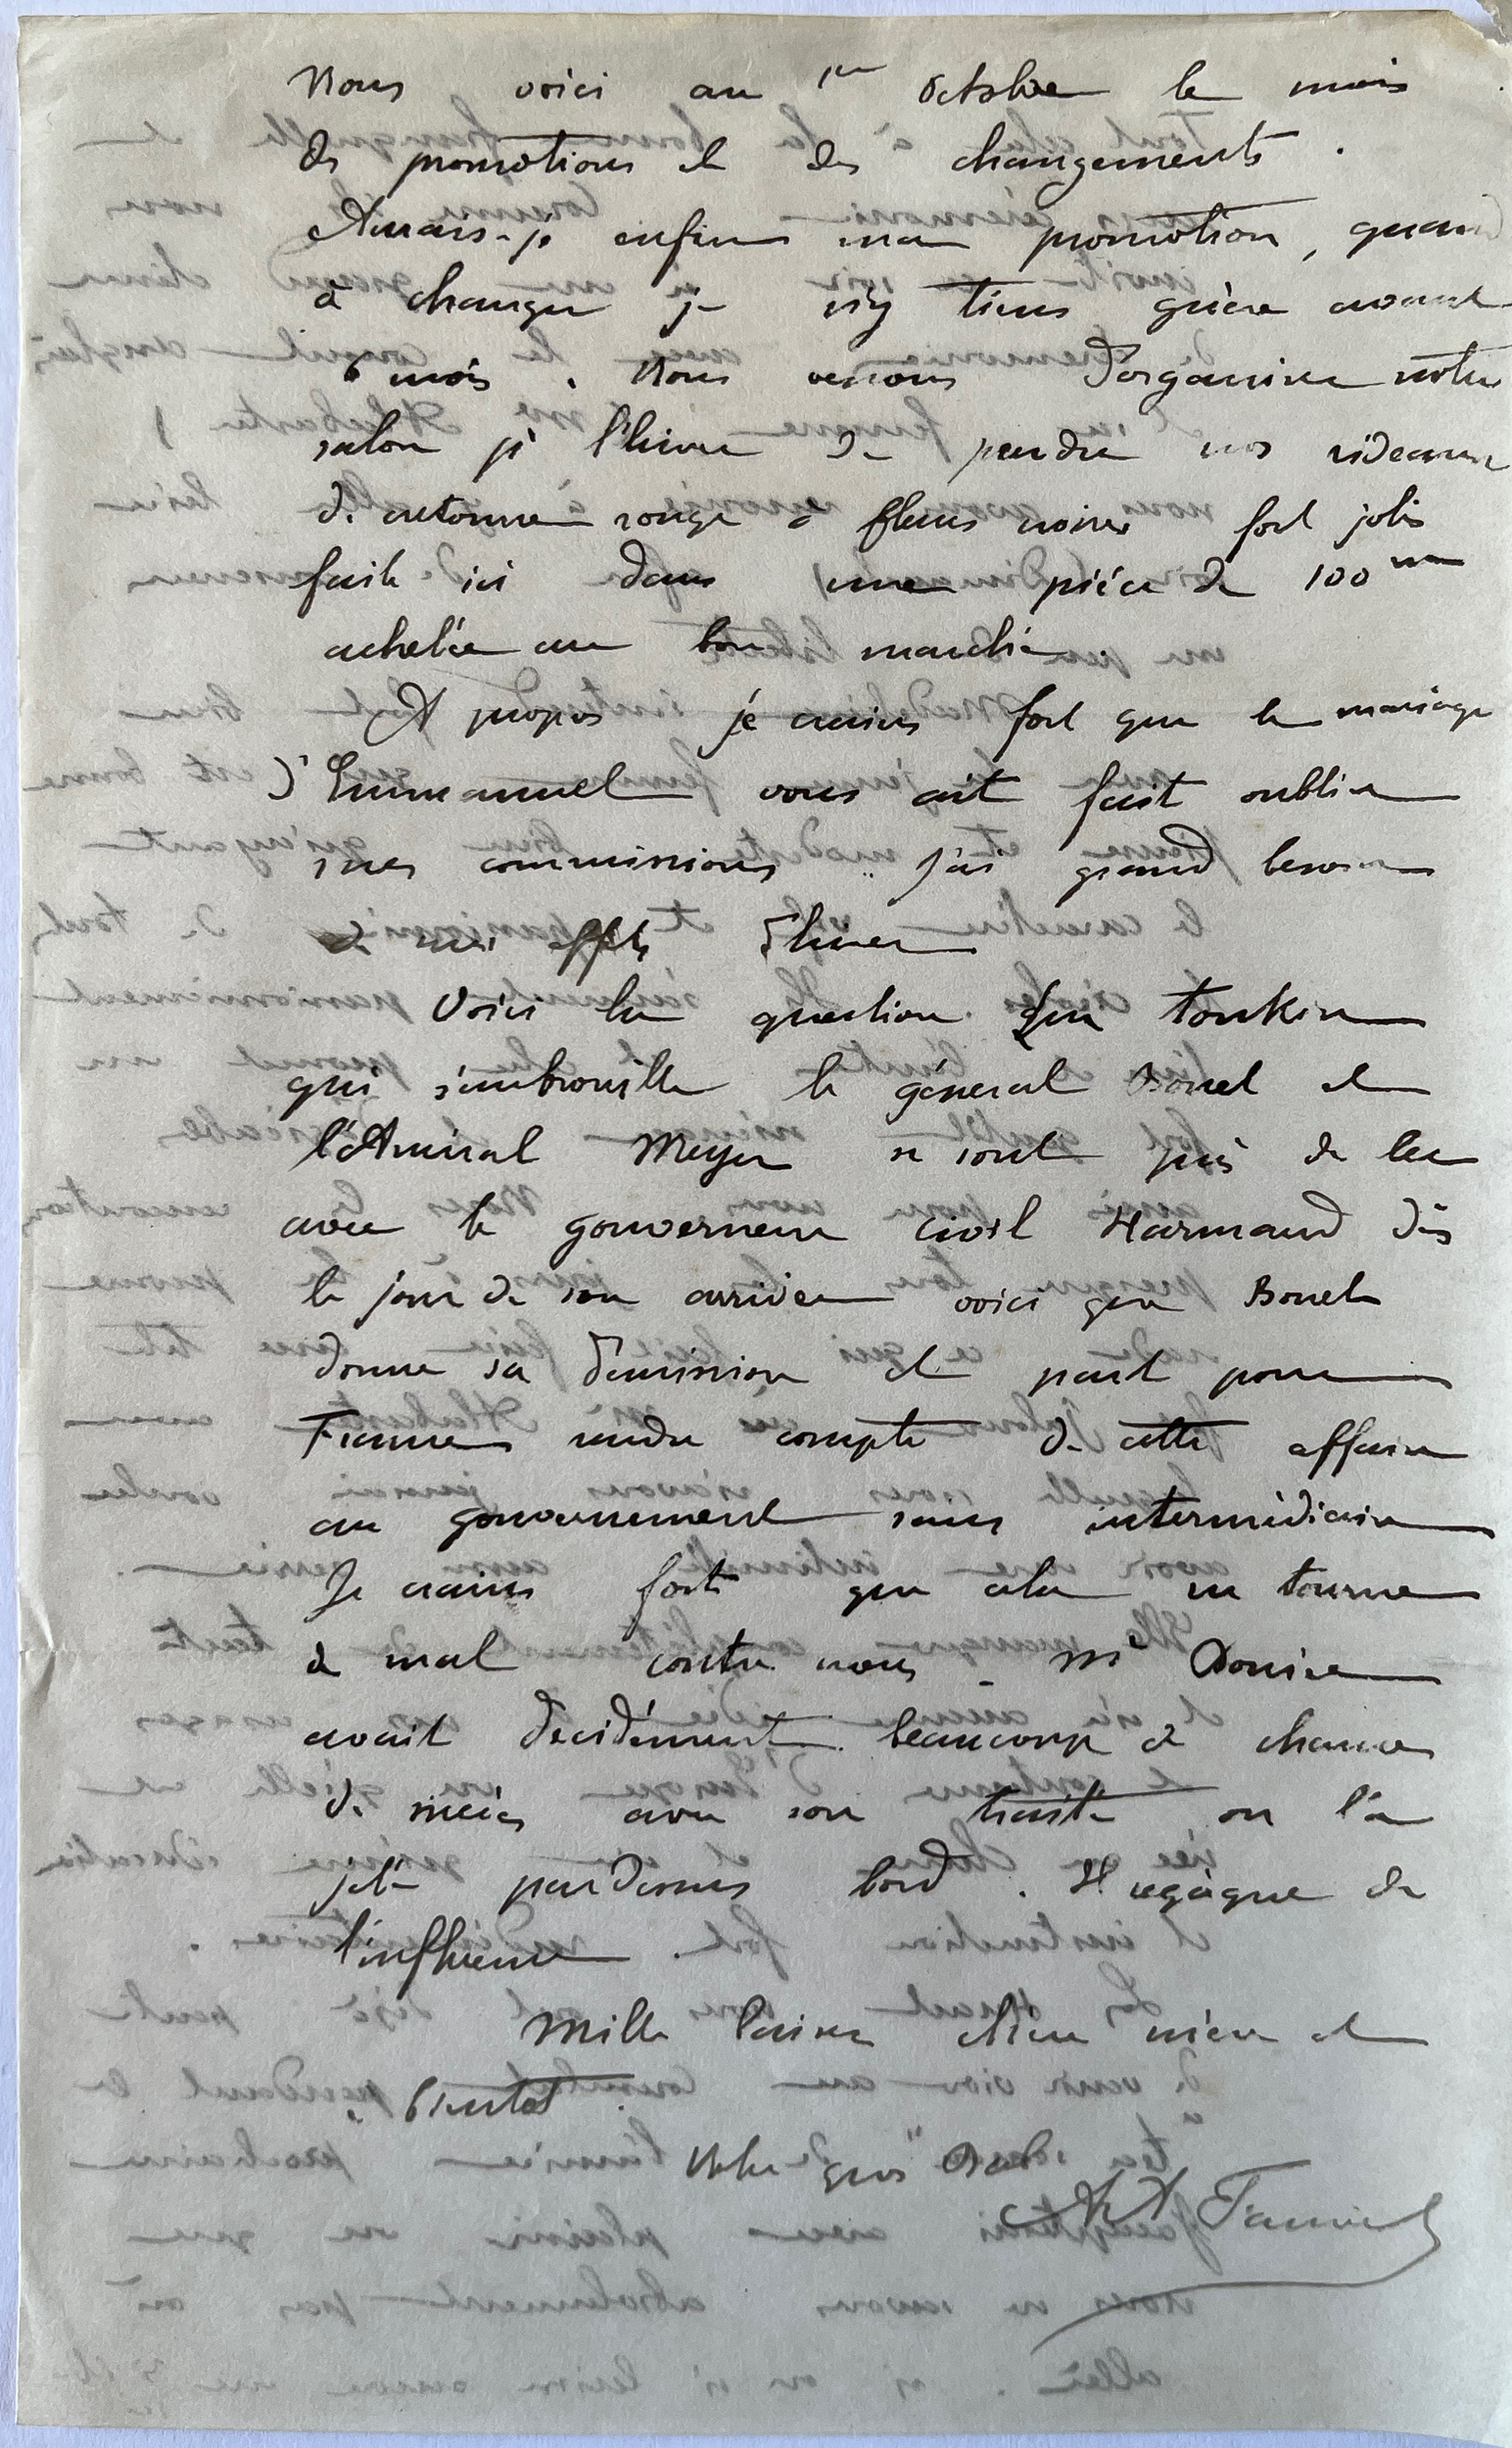 Nous voici au 1er Octobre le mois
des promotions et des changements.
Aurais-je enfin ma promotion, quand
à changer je n'y tiens guère avant
6 mois. Nous venons d'organiser notre
salon j'  de pendre nos rideaux
de cretonne rouge à fleurs noires fort jolis
faits ici dans une pièce de 100 m
achetée au bon marché.
A propos je crains fort que le mariage
d'Emmanuel vous ait fait oublier
mes commissions j'ai grand besoin
de mes effets d'hiver
Voici la question du tonkin
qui s'embrouille le général Bouet et
l'Amiral Meyer se sont pris de bec
avec le gouverneur civil Harmand dès
le jour de son arrivée voici que Bouet
donne sa démission et part pour
France rendre compte de cette affaire
au gouvernement sans intermédiaire
Je crains fort que cela ne tourne
à mal contre nous. Mr Bourée
avait décidément beaucoup de chance
de succès avec son traité on l'a
jeté par dessus bord. Il regagne de
l'influence.
Mille baisers chère mère et
à bientôt.
Votre gros "